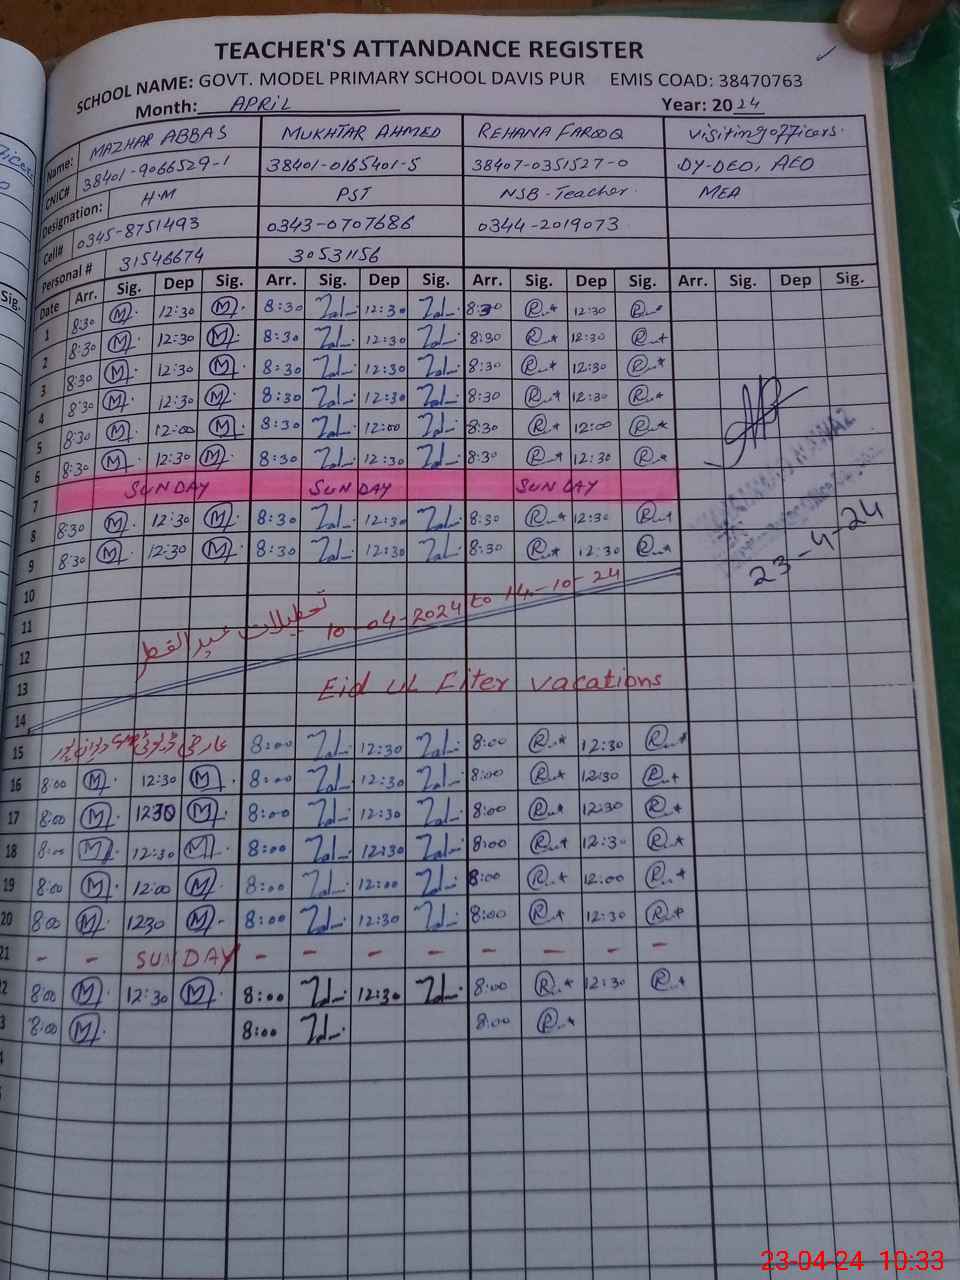 TEACHER'S ATTANDANCE REGISTER
SCHOOL NAME: GOVT. MODEL PRIMARY SCHOOL DAVIS PUR EMIS COAD: 38470763
Month: APRIL Year: 2024
Name: MAZHAR ABBAS MUKHTAR AHMED REHANA FAROOQ Visiting officers.
CNIC# 38401-9066529-1 38401-0165401-5 38407-0351527-0 DY-DEO, AEO
Designation: H.M PST NSB-Teacher. MEA
Cell# 0345-8751493 0343-0707686 0344-2019073
Personal # 31546674 30531156
Date Arr. Sig. Dep Sig. Arr. Sig. Dep Sig. Arr. Sig. Dep Sig. Arr. Sig. Dep Sig.
1 8:30 M 12:30 M 8:30 12:30 8:30 R 12:30 R
2 8:30 M 12:30 M 8:30 12:30 8:30 R 12:30 R
3 8:30 M 12:30 M 8:30 12:30 8:30 R 12:30 R
4 8:30 M 12:30 M 8:30 12:30 8:30 R 12:30 R
5 8:30 M 12:00 M 8:30 12:00 8:30 R 12:00 R
6 8:30 M 12:30 M 8:30 12:30 8:30 R 12:30 R
7 SUNDAY SUNDAY SUNDAY
8 8:30 M 12:30 M 8:30 12:30 8:30 R 12:30 R
9 8:30 M 12:30 M 8:30 12:30 8:30 R 12:30 R
23-4-24
10
11 تعطیلات عید الفطر 10-04-2024 to 14-10-24
12
13 Eid ul Fiter vacations
14
15 8:00 12:30 8:00 R 12:30 R
16 8:00 M 12:30 M 8:00 12:30 8:00 R 12:30 R
17 8:00 M 1230 M 8:00 12:30 8:00 R 12:30 R
18 8:00 M 12:30 M 8:00 12:30 8:00 R 12:30 R
19 8:00 M 12:00 M 8:00 12:00 8:00 R 12:00 R
20 8:00 M 1230 M 8:00 12:30 8:00 R 12:30 R
21 - - SUNDAY - - - - - - - -
2 8:00 M 12:30 M 8:00 12:30 8:00 R 12:30 R
3 8:00 M 8:00 8:00 R
23-04-24 10:33